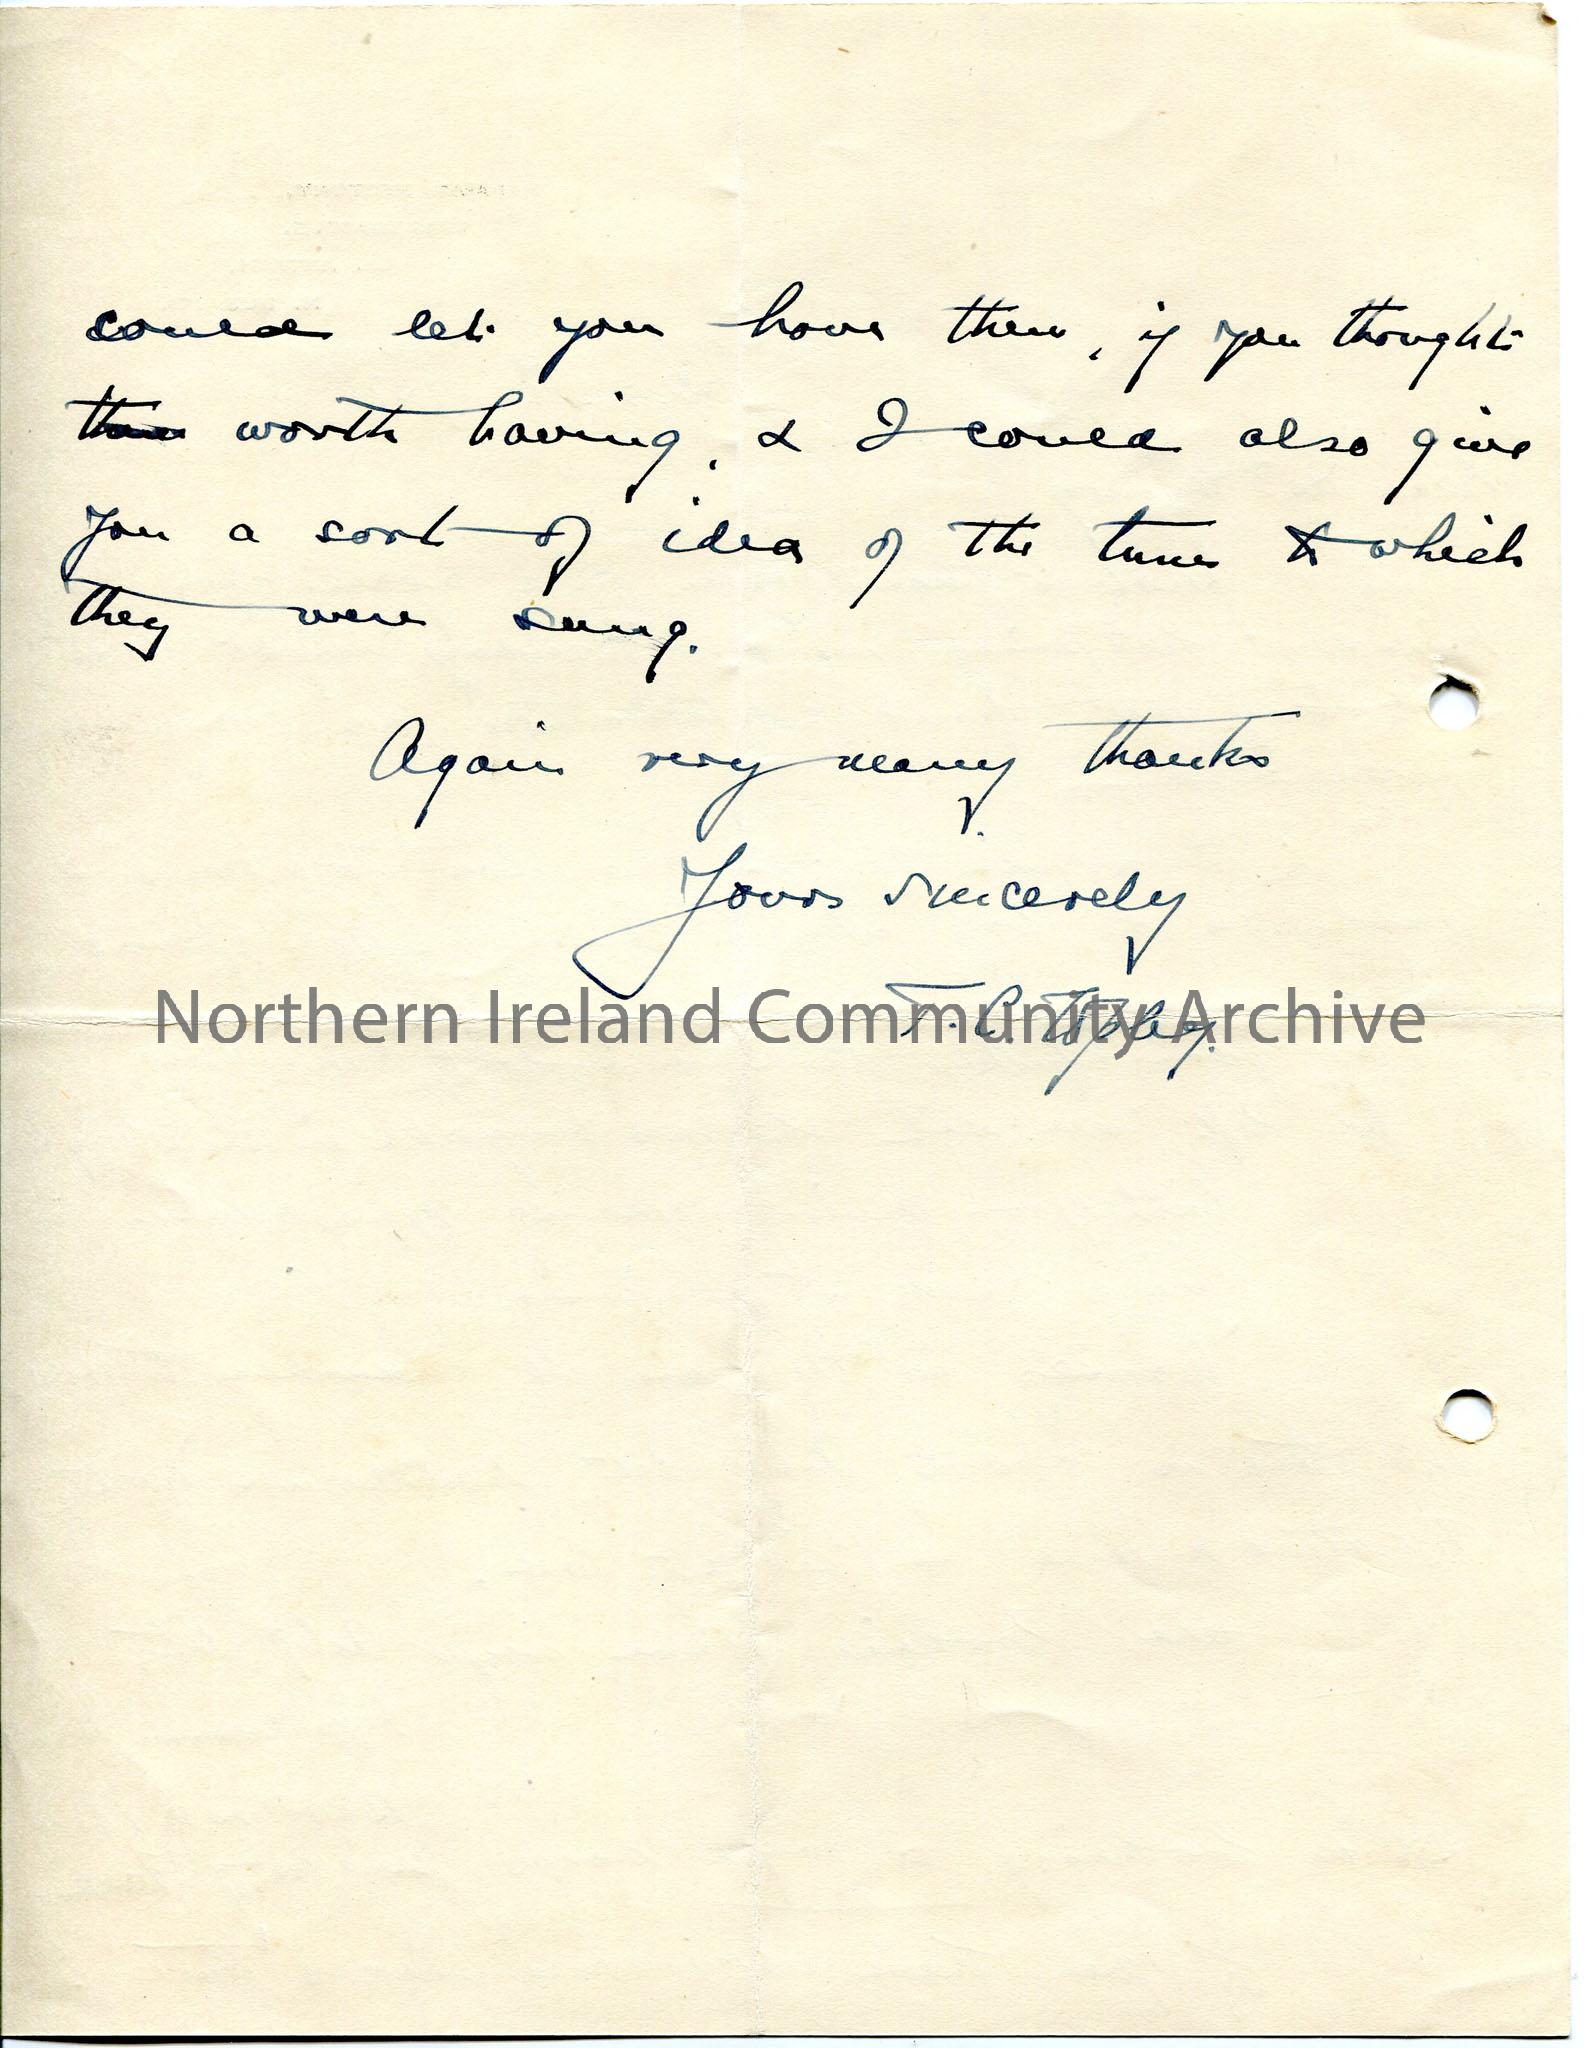 could let you have them, if you thought
them worth having, & I could also give
you a sort of idea of the tune to which
they were sung.
Again very many thanks
Yours sincerely
Northern Ireland Community Archive